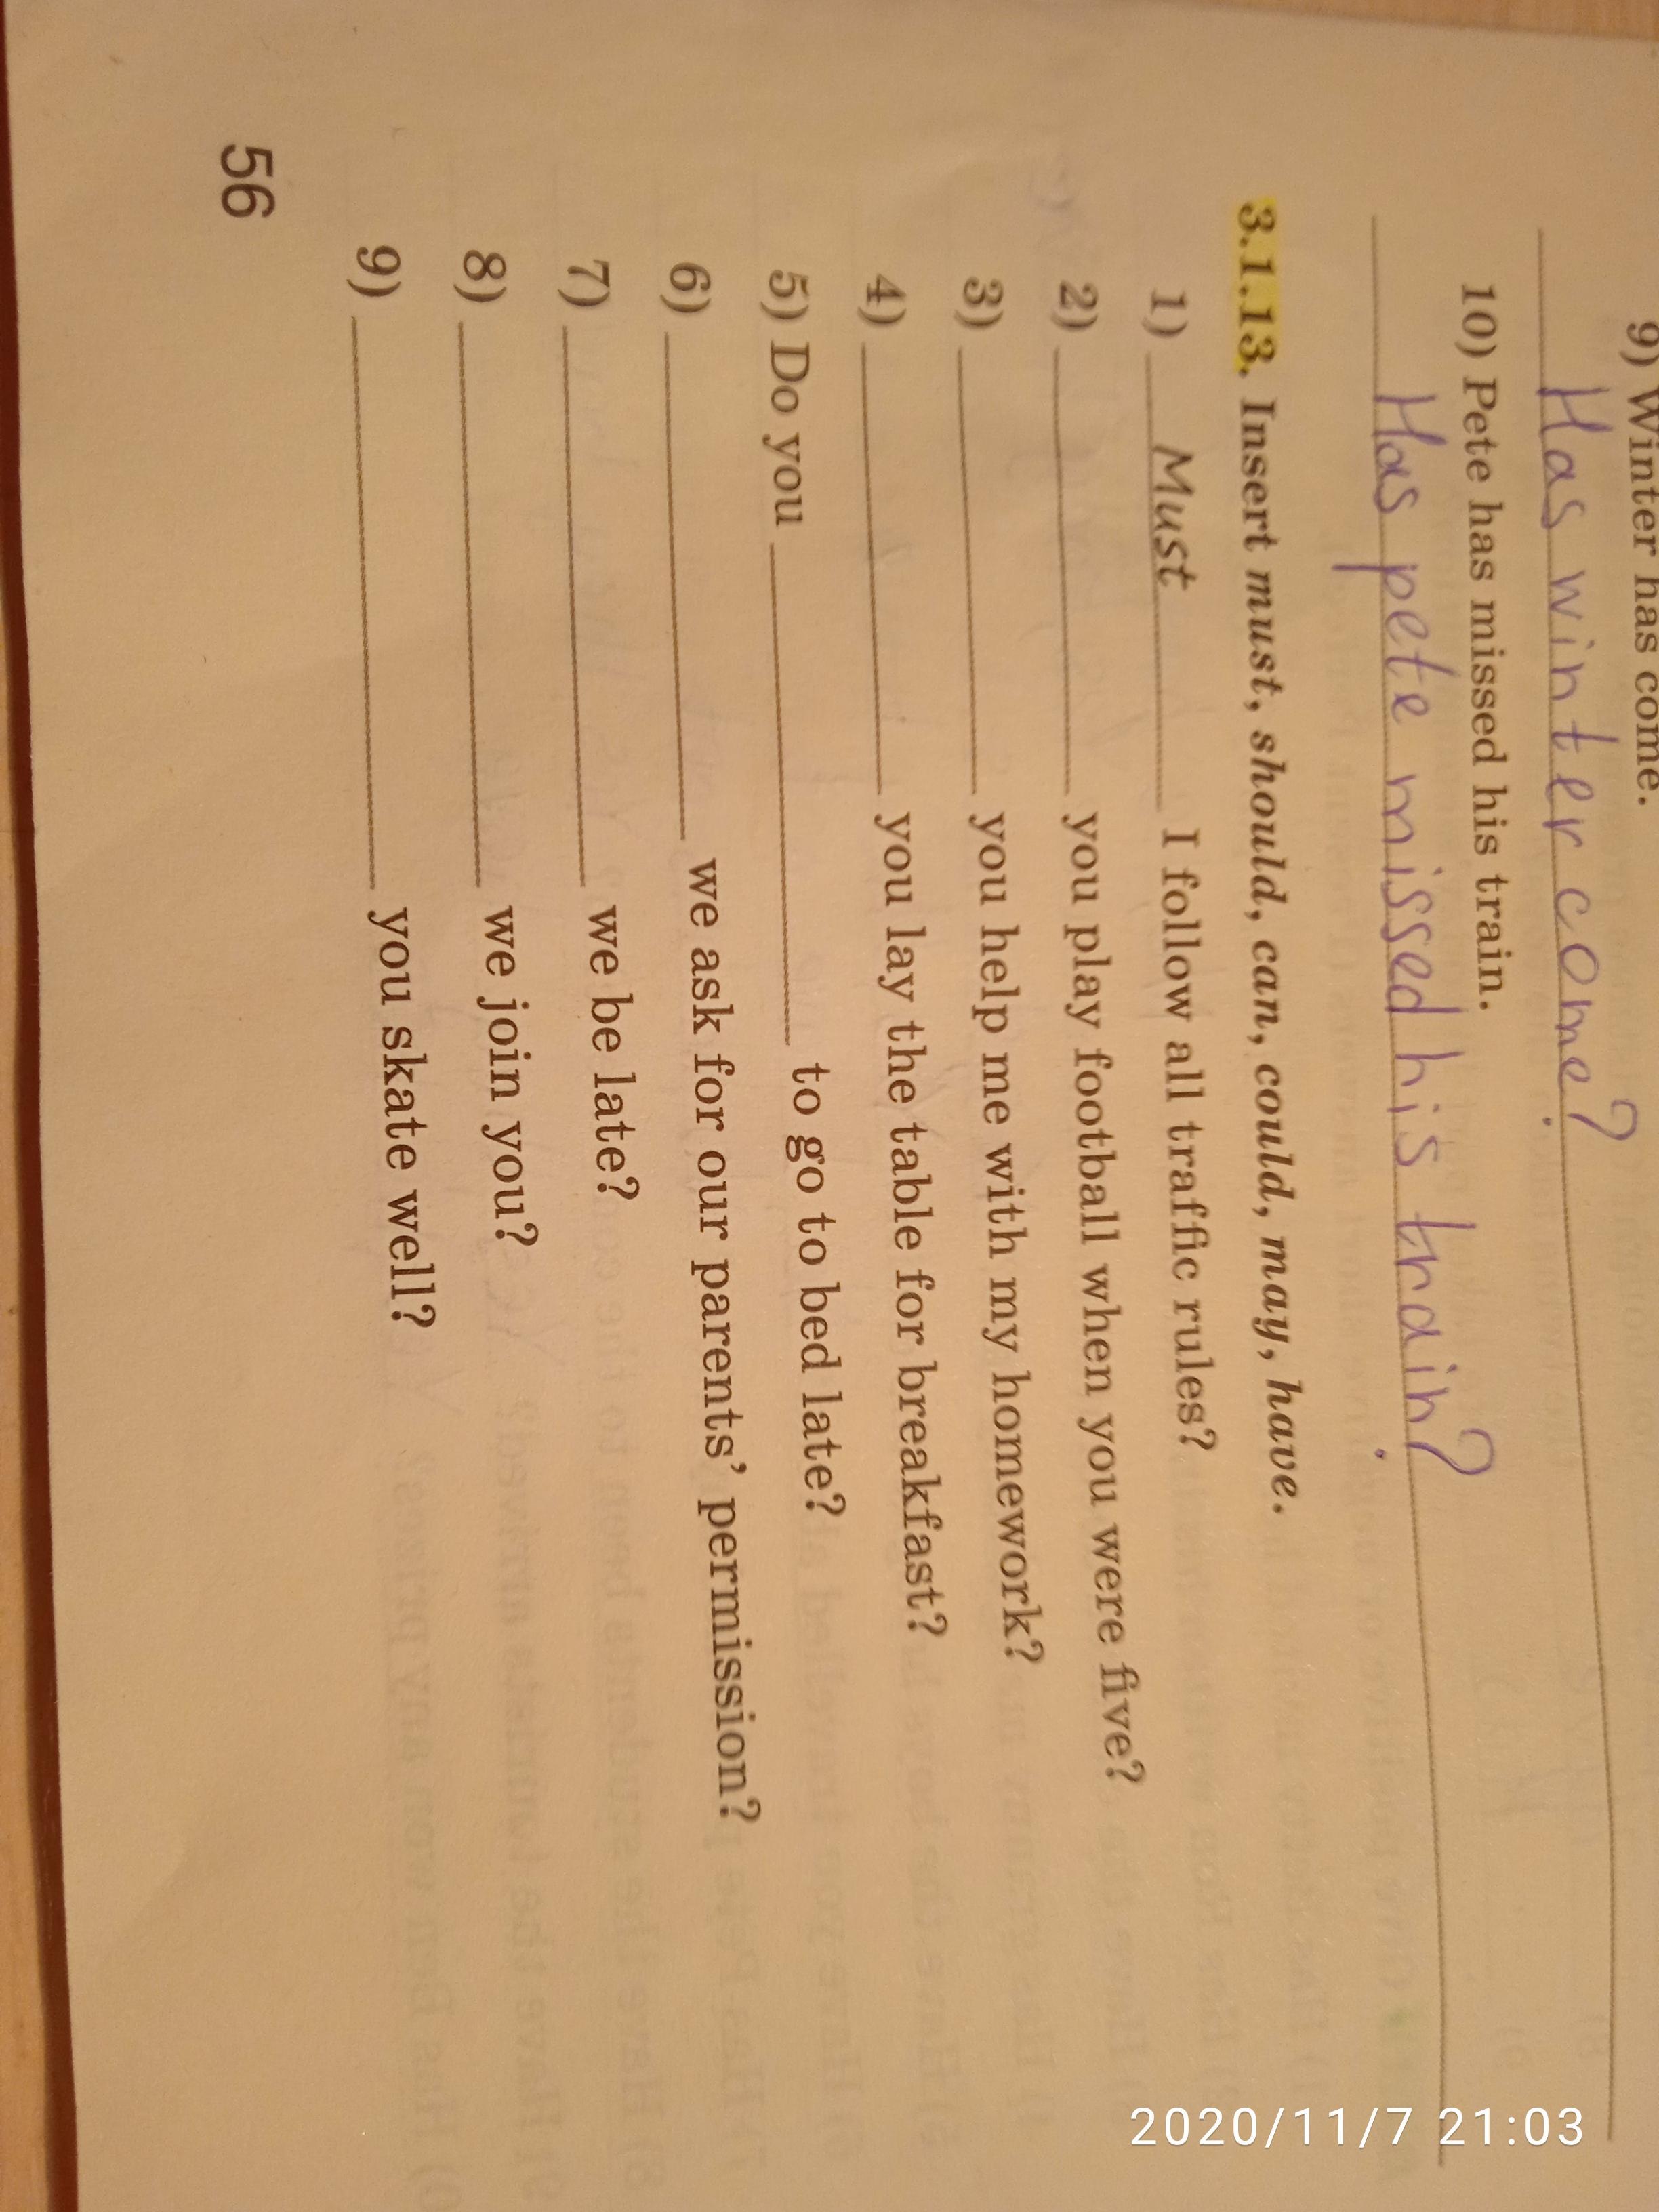 9) Winter has come.
Has winter come?
10) Pete has missed his train.
Has pete missed his train?
3.1.13. Insert must, should, can, could, may, have.
1) Must I follow all traffic rules?
2) you play football when you were five?
3) you help me with my homework?
4) you lay the table for breakfast?
5) Do you to go to bed late?
6) we ask for our parents' permission?
7) we be late?
8) we join you?
9) you skate well?
56
2020/11/7 21:03